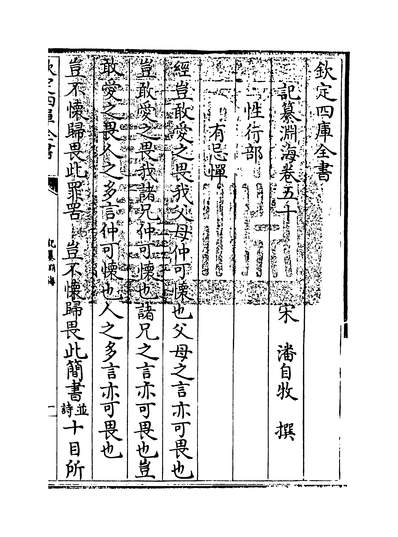 欽定四庫全書
記纂淵海卷五十一
宋 潘自牧 撰
性行部
有忌憚
經豈敢愛之畏我父母仲可懷也父母之言亦可畏也
豈敢愛之畏我諸兄仲可懷也諸兄之言亦可畏也豈
敢愛之畏人之多言仲可懷也人之多言亦可畏也
豈不懷歸畏此罪罟 豈不懷歸畏此簡書並詩十目所
欽定四庫全書
記纂淵海
一